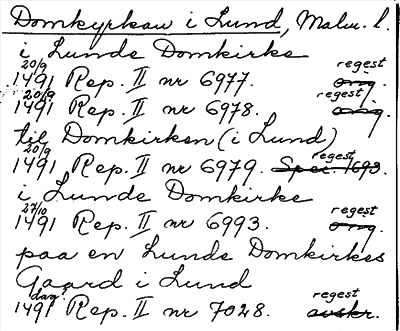 Domkyrkan i Lund, Malm. l.
i Lunde Domkirke
20/9 1491 Rep. II nr 6977. orig. regest
20/9 1491 Rep. II nr 6978. orig. regest
til Domkirken (i Lund)
20/9 1491 Rep. II nr 6979. Spec. 1693. regest
i Lunde Domkirke
27/10 1491 Rep. II nr 6993. orig. regest
paa en Lunde Domkirkes
Gaard i Lund
dag? 1491 Rep. II nr 7028. avskr. regest